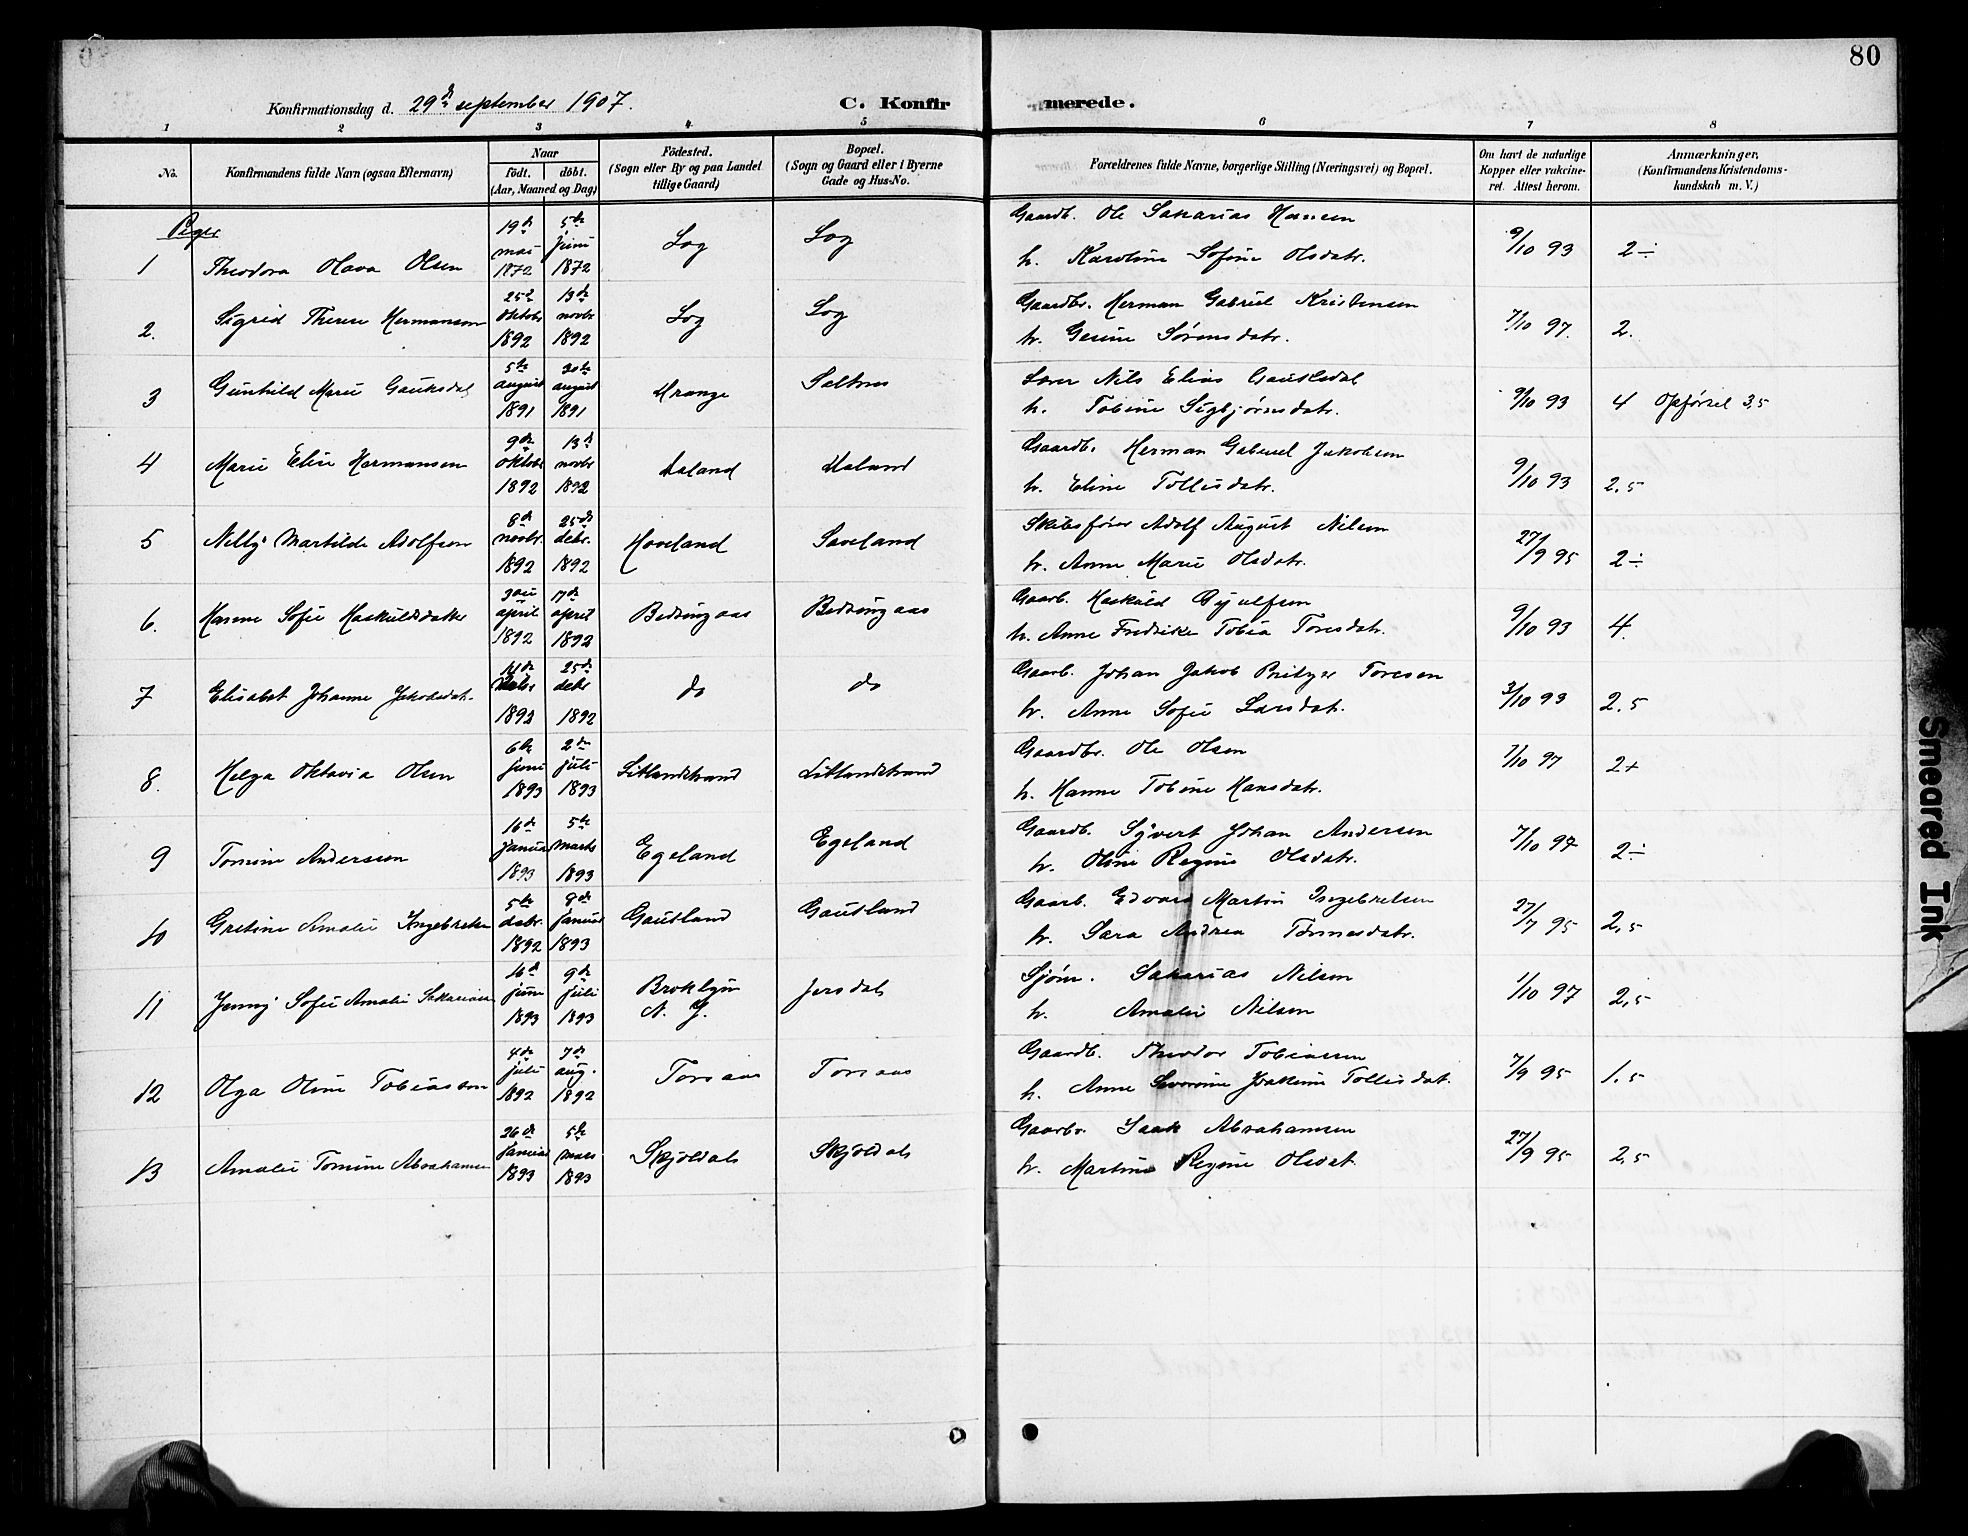 80
Konfirmationsdag d. 29de september 1907.
C. Konfirmerede.
1 2 3 4 5 6 7 8
No.
Konfirmandens fulde Navn (ogsaa Efternavn)
Naar
födt. döbt.
(Aar, Maaned og Dag)
Födested.
(Sogn eller By og paa Landet
tillige Gaard)
Bopæl.
(Sogn og Gaard eller i Byerne
Gade og Hus-No.
Forældrenes fulde Navne, borgerlige Stilling (Næringsvei) og Bopæl.
Om havt de naturlige
Kopper eller vakcine-
ret. Attest herom.
Anmærkninger,
(Konfirmandens Kristendoms-
kundskab m. V.)
Piger
1 Theodora Olava Olsen 19de mai 1872 5te juni 1872 Log Log Gaardb. Ole Sakarias Hansen
h. Karoline Sofine Olsdatr. 9/10 93 2÷
2. Sigrid Therese Hermansen 25de oktobr 1892 13de novbr 1892 Log Log Gaardbr. Herman Gabriel Kristensen
h. Gesine Sørensdatr. 7/10 97. 2.
3 Gunhild Marie Gauksdal 5te august 1891 august 1891 Urange Seltnes Lærer Nils Elias Gauksdal
h. Tobine Sigbjørnsdatr. 9/10 93 4 Opførsel 3,5
4 Marie Elise Hermansen 9de oktobr 1892 13de novbr 1892 Aaland Aaland Gaardb. Herman Gabriel Jakobsen
h. Eline Tollisdatr. 9/10 93 2,5
5 Nelly Martilde Adolfsen 8de novbr. 1892 25de debr. 1892 Hoveland Saveland Skibsfører Adolf August Nilsen
h. Anne Marie Olsdatr. 27/9 95 2÷
6. Hanne Sofie Haskuldsdatter april 1892 17de april 1892 Bedringaas Bedringaas Gaardb. Haskuld Eyulfsen
h. Anne Fredrikke Tobia Toresdatr. 9/10 93 4.
7 Elisabet Johanne Jakobsdatr. 1892 25de debr 1892 do do Gaardb. Johan Jakob Toresen
h. Anne Sofie Larsdatr. 3/10 93 2,5
8. Helga Oktavia Olsen 6te juni 1893 2den juli 1893 Litlandstrand Litlandstrand Gaardbr. Ole Olsen
h. Hanne Tobine Hansdatr. 7/10 97 2+
9 Tomine Andersen 16de januar 1893 5te marts 1893 Egeland Egeland Gaardb. Syvert Johan Andersen
h. Oline Regine Olsdatr. 7/10 97 2÷
10 Gretine Amalie Ingebretsen 5te debr. 1892 8de januar 1893 Gautland Gautland Gaardb. Edvard Martin Ingebretsen
h. Sara Andrea Tønnesdatr. 27/7 95 2,5
11 Jenny Sofie Amalie Sakariasen 16de juni 1893 9de juli 1893 Broklyn N. Y. Jersdal Sjøm. Sakarias Nilsen
h. Amalie Nilsen 1/10 97 2,5
12 Olga Oline Tobiassen 4de juli 1892 7de aug. 1892 Torsaas Torsaas Gaardb. Theodor Tobiassen
h. Anne Severine Joakime Tollisdat. 7/9 95 1.5
13 Amalie Tomine Abrahamsen 26de januar 1893 5te mars 1893 Skjoldal Skjoldal Gaardbr. Isaak Abrahamsen
h. Martine Regine Olsdat. 27/9 95 2,5
Smeared Ink